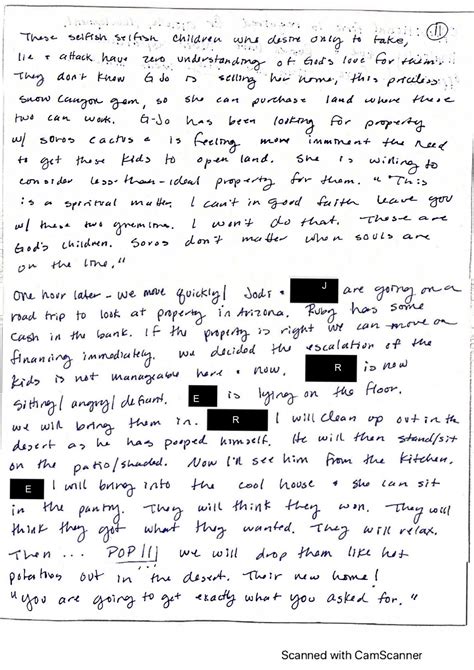 11
These selfish selfish children who desire only to take,
lie & attack have zero understanding of God's love for them.
They don't know G-Jo is selling her home, this priceless
snow canyon gem, so she can purchase land where these
two can work. G-Jo has been looking for property
w/ soros cactus & is feeling more imminent the need
to get these kids to open land. She is willing to
consider less-than-ideal property for them. "This
is a spiritual matter. I can't in good faith leave you
w/ these two gremlins. I won't do that. These are
God's children. Soros don't matter when souls are
on the line."
One hour later - we move quickly/ Jodi & J are going on a
road trip to look at property in Arizona. Ruby has some
cash in the bank. If the property is right we can move on
financing immediately. We decided the escalation of the
kids is not manageable here & now. R is now
sitting/ angry/ defiant. E is lying on the floor.
we will bring them in. R I will clean up out in the
desert as he has pooped himself. He will then stand/sit
on the patio/shaded. Now I'll see him from the kitchen.
E I will bring into the cool house & she can sit
in the pantry. They will think they won. They will
think they got what they wanted. They will relax.
Then ... POP!!! we will drop them like hot
potatoes out in the desert. Their new home!
"You are going to get exactly what you asked for."
Scanned with CamScanner